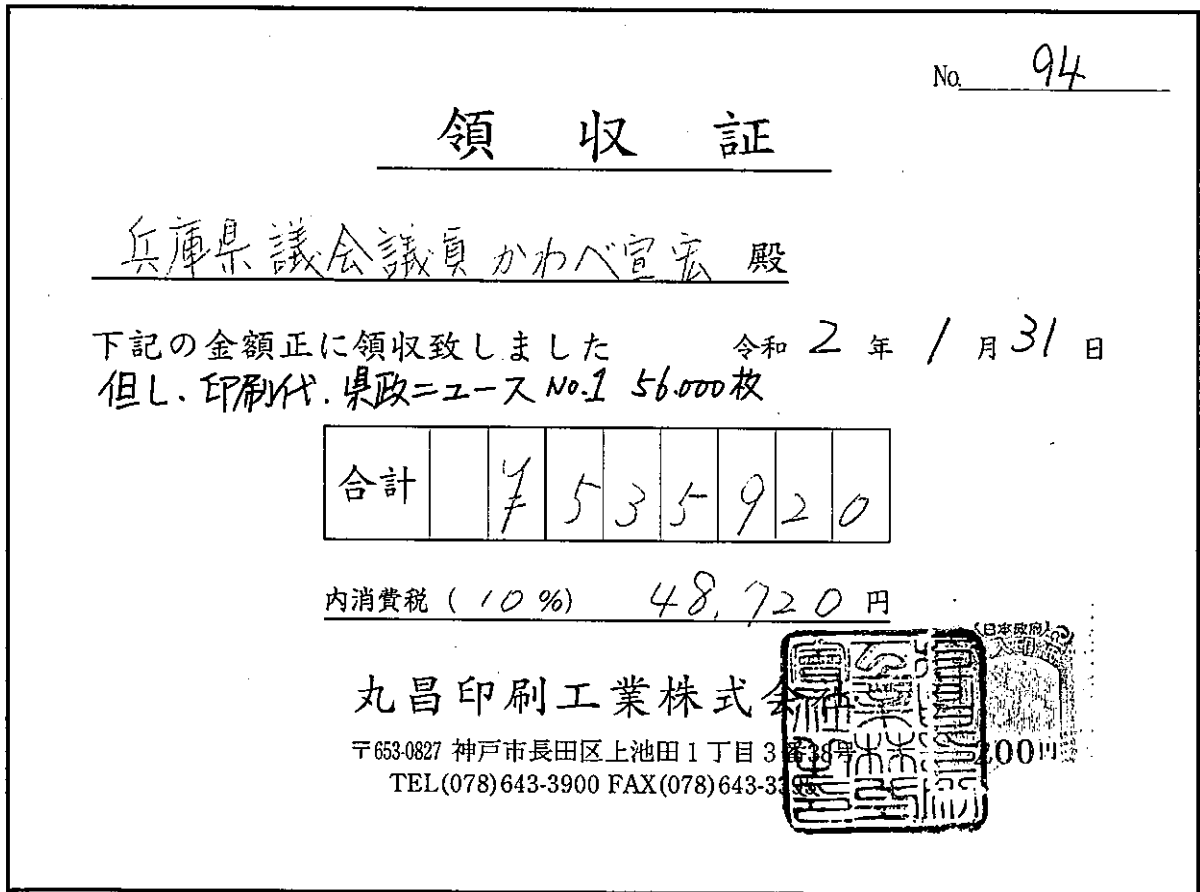 No. 94
領収証
兵庫県議会議員 かわべ宣宏 殿
下記の金額正に領収致しました 令和 2 年 1 月 31 日
但し、印刷代、県政ニュース No.1 56.000枚
合計 ¥535920
内消費税 (10%) 48,720 円
丸昌印刷工業株式会社
〒653-0827 神戸市長田区上池田1丁目3番38号
TEL(078)643-3900 FAX(078)643-33
日本政府
200円